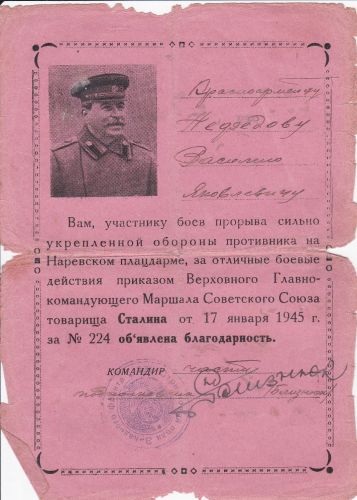 Красноармейцу
Недведову
Василию
Яковлевичу
Вам, участнику боев прорыва сильно
укрепленной обороны противника на
Наревском плацдарме, за отличные боевые
действия приказом Верховного Главно-
командующего Маршала Советского Союза
товарища Сталина от 17 января 1945 г.
за № 224 об'явлена благодарность.
КОМАНДИР части
подполковник